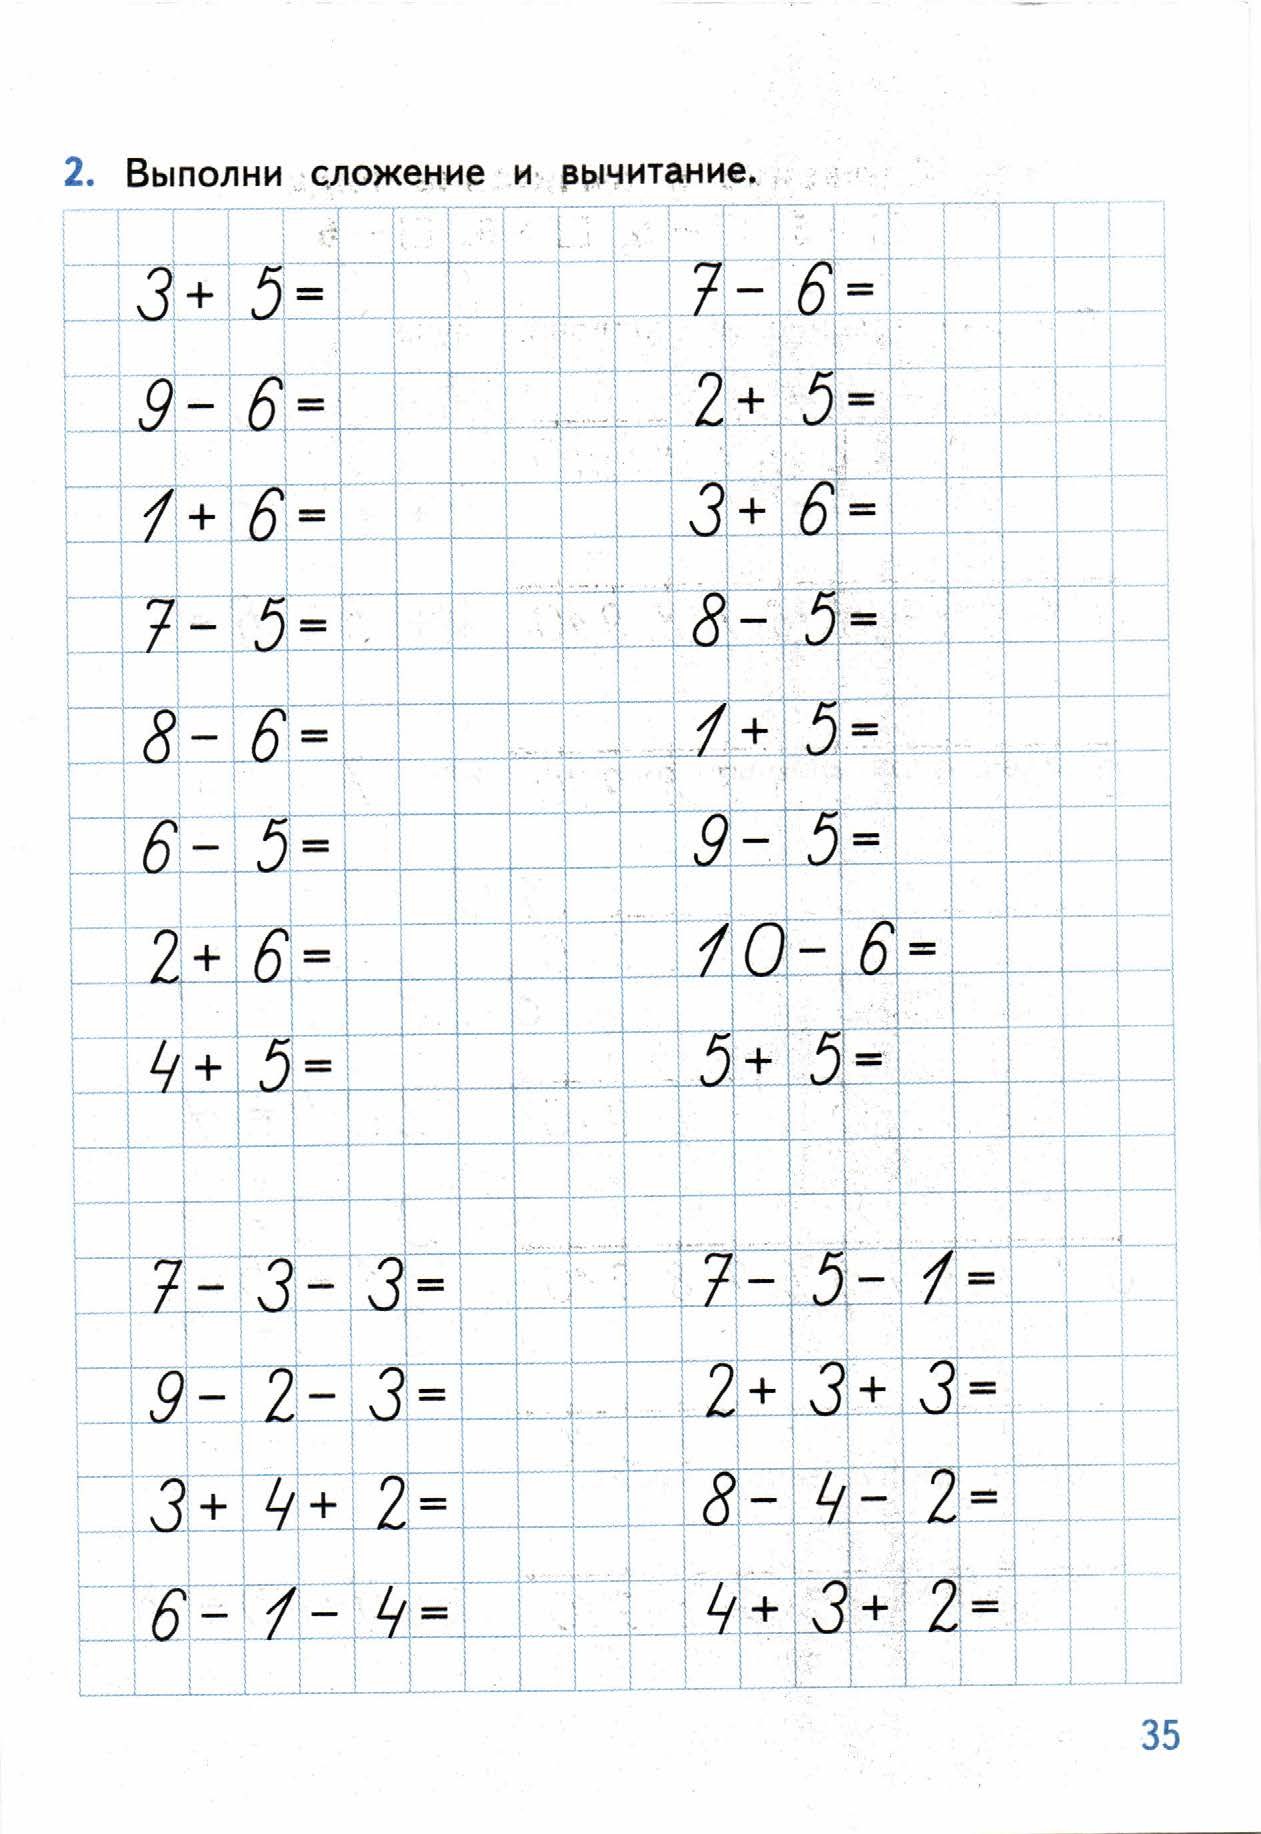 2. Выполни сложение и вычитание.
3 + 5 = 7 - 6 =
9 - 6 = 2 + 5 =
1 + 6 = 3 + 6 =
7 - 5 = 8 - 5 =
8 - 6 = 1 + 5 =
6 - 5 = 9 - 5 =
2 + 6 = 10 - 6 =
4 + 5 = 5 + 5 =
7 - 3 - 3 = 7 - 5 - 1 =
9 - 2 - 3 = 2 + 3 + 3 =
3 + 4 + 2 = 8 - 4 - 2 =
6 - 1 - 4 = 4 + 3 + 2 =
35